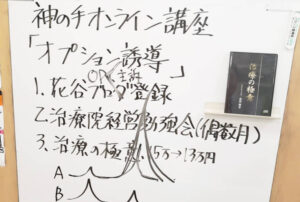 神の手オンライン講座
「オプション誘導」
1. 花谷ブログ登録
2. 治療院経営勉強会(偶数月)
3. 治療の極意 15万→13万円
A
B
治療の極意